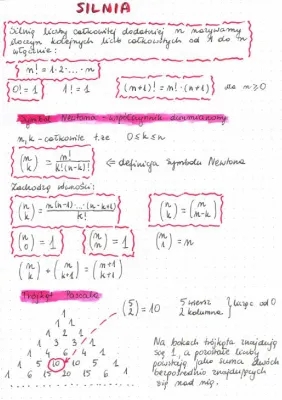 SILNIA
Silnią liczby całkowitej dodatniej n nazywamy
iloczyn kolejnych liczb całkowitych od 1 do n
włącznie:
n! = 1·2·...·n
0! = 1    1! = 1    (n+1)! = n!·(n+1)    dla n ≥ 0
Symbol Newtona - współczynnik dwumianowy
n, k - całkowite t.że    0 ≤ k ≤ n
(n k) = n! / k!(n-k)!    ⇐ definicja symbolu Newtona
Zachodzą równości:
(n k) = n(n-1)·...·(n-k+1) / k!    (n k) = (n n-k)
(n 0) = 1    (n n) = 1    (n 1) = n
(n k) + (n k+1) = (n+1 k+1)
Trójkąt Pascala
(5 2) = 10    5 wiersz    licząc od 0
2 kolumna
1
1 1
1 2 1
1 3 3 1
1 4 6 4 1
1 5 10 10 5 1
1 6 15 20 15 6 1
Na bokach trójkąta znajdują
się 1, a pozostałe liczby
powstają jako suma dwóch
bezpośrednio znajdujących
się nad nią.